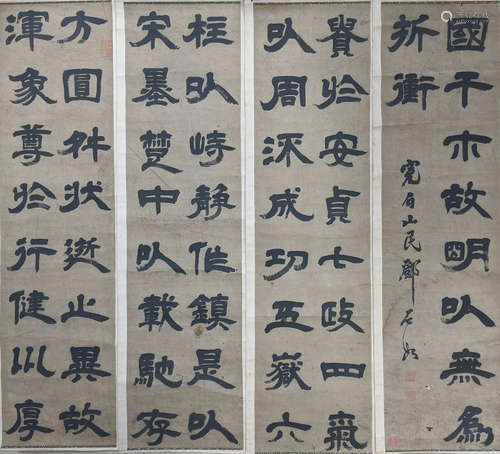 方圓殊狀逝止異故
渾象尊於行健巛厚
貴於安貞七政四氣
以周流成功五嶽六
柱以峙靜作鎮是以
宋墨楚申以載馳存
國干木故明以無為
折衝
完白山民鄧石如